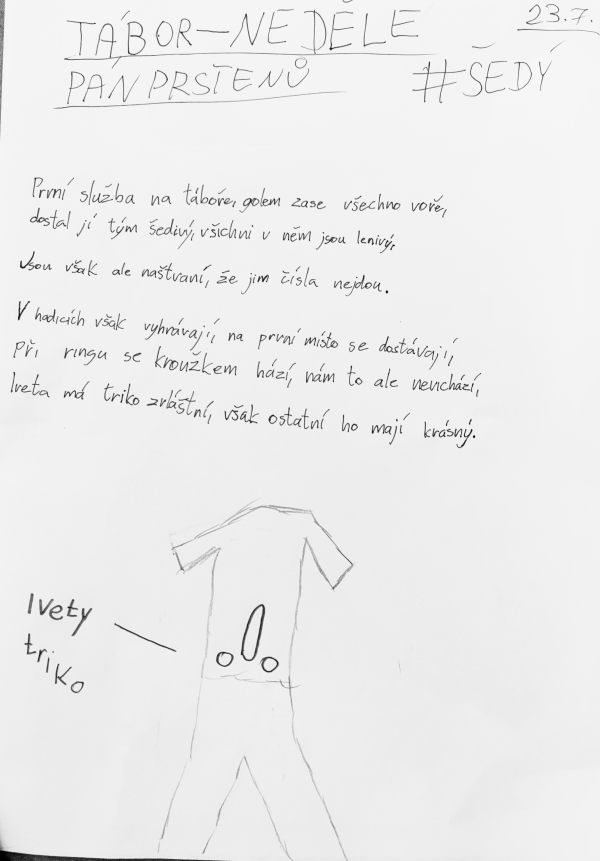 23.7.
TÁBOR-NEDĚLE
PÁN PRSTENŮ
#ŠEDÝ
První služba na táboře, golem zase všechno voře,
dostal jí tým šedivý, všichni v něm jsou lenivý,
Jsou však ale naštvaní, že jim čísla nejdou.
V hadicích však vyhrávají, na první místo se dostávají,
Při ringu se kroužkem hází, nám to ale nevchází,
Iveta má triko zvláštní, však ostatní ho mají krásný.
Ivety
triko